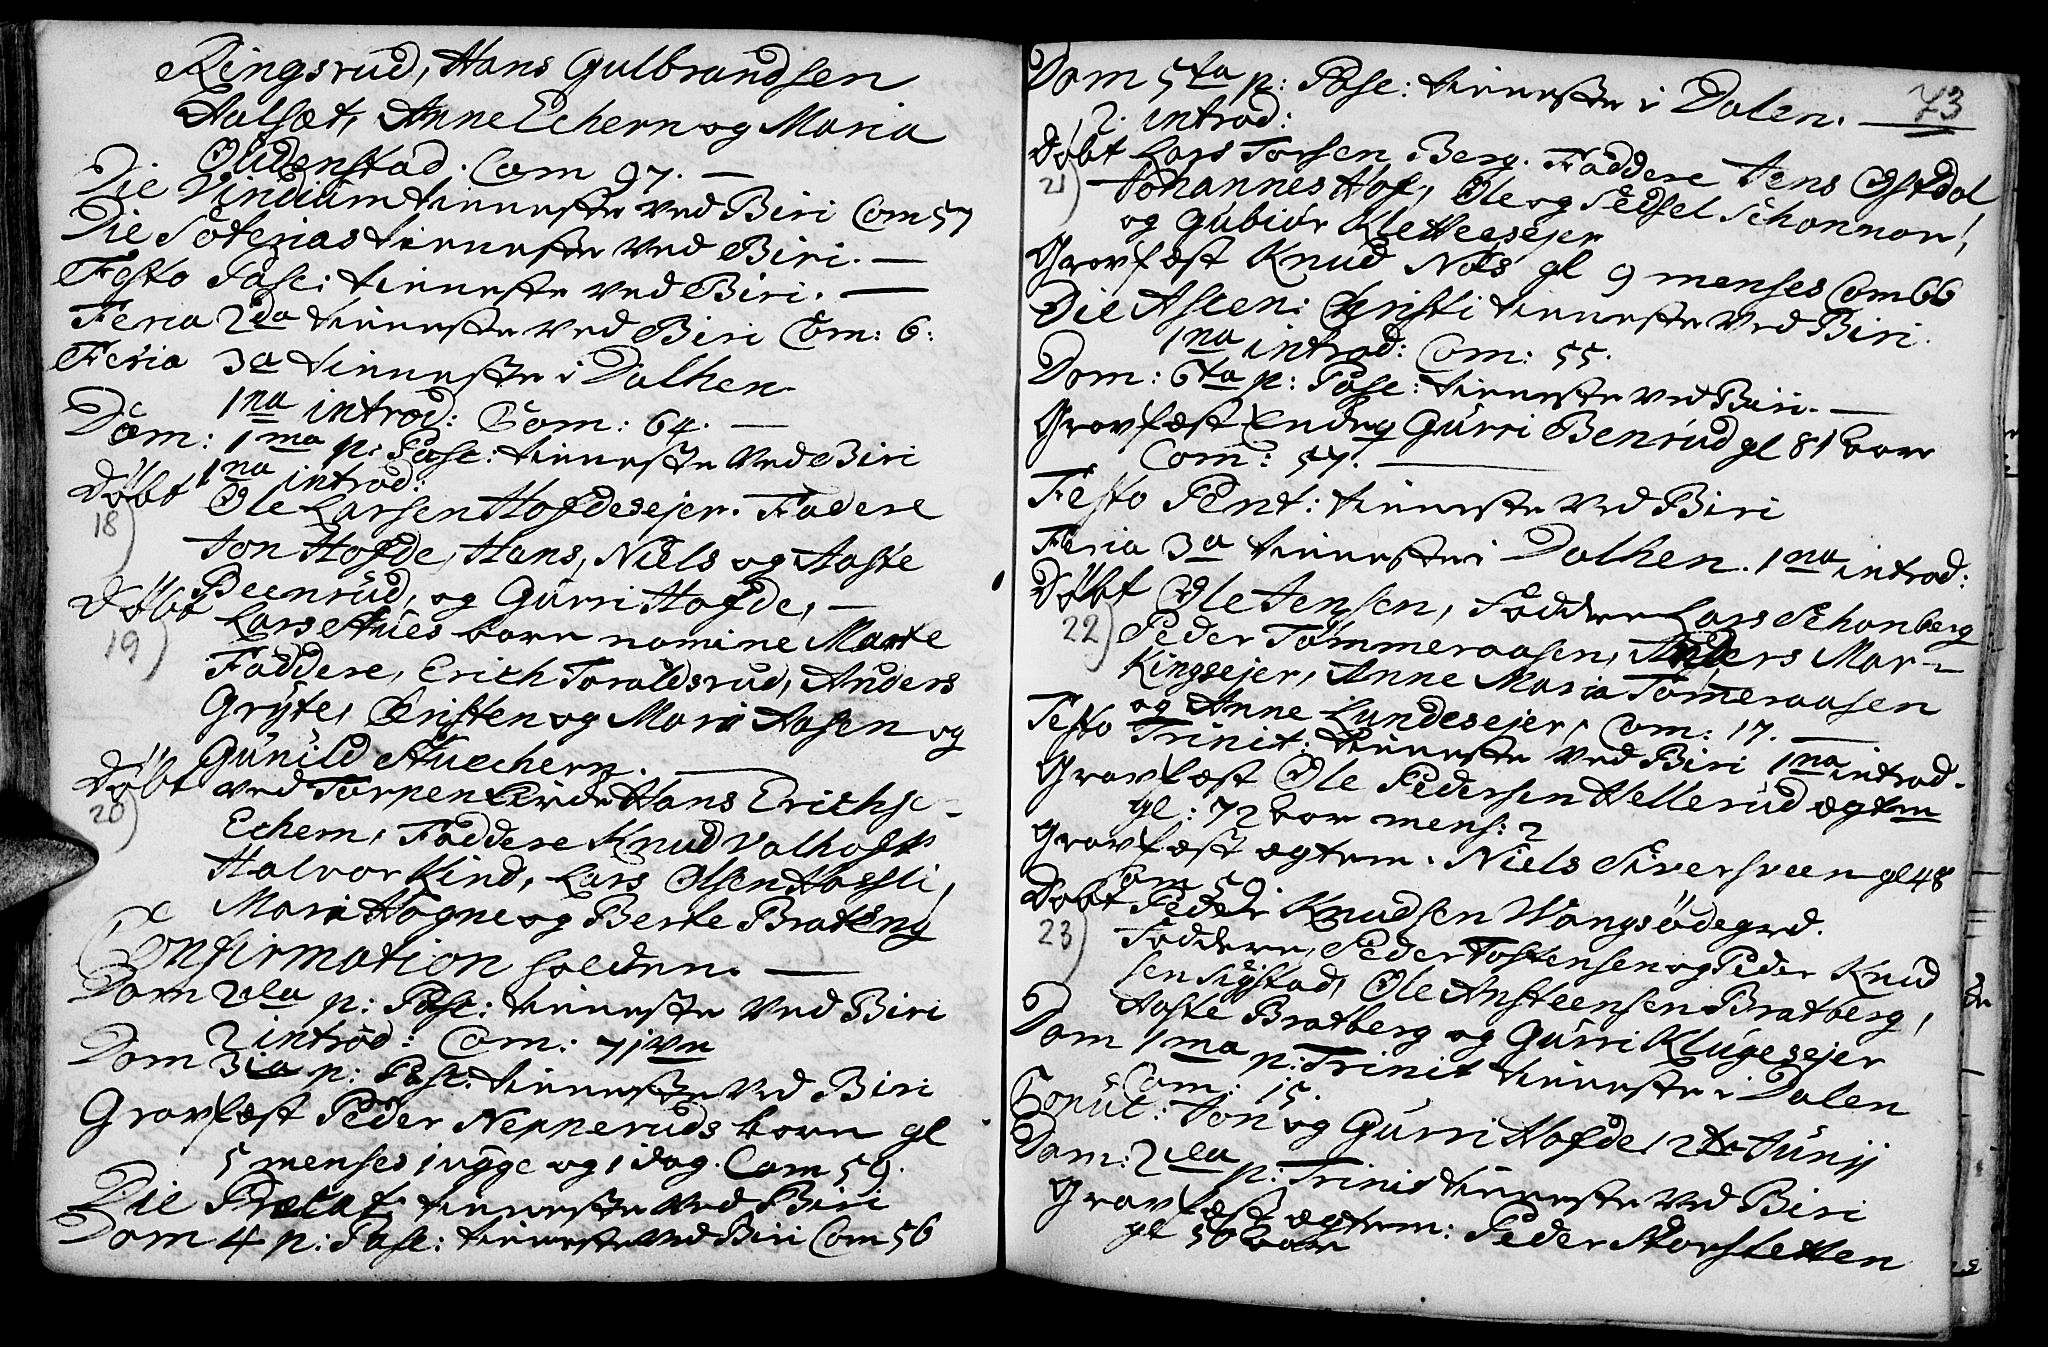 Ringsrud, Hans Gulbrandsen
Aalsæt, Anne Echern og Maria
Oudenstad. Com 97. —
Die Viridium tienneste ved Biri Com 57
Die Soterias tienneste ved Biri. —
Festo Pasc: tienneste ved Biri. —
Feria 2da tienneste ved Biri Com: 6:
Feria 3a tienneste i Dalhen
1na introd: Com: 64. —
Dom: 1ma p: Pasc: tienneste ved Biri
1na introd:
Døbt Ole Larsen Hofdesejer. Fadere
18)
Jon Hofde, Hans, Niels og Aaste
Beenrud, og Gurri Hofde, —
Døbt Lars Stues barn nomine Marte
19)
Faddere, Erich Toraldsrud, Anders
Gryte, Cristen og Mari Aasen og
Gunild Stuechern. —
Døbt ved Torpen Hans Erichs-
20)
Echern, Faddere Knud Valhofd
Halvor Kind, Lars Olsen Hassli,
Mari Hogne og Berte Brateng
Confirmation holden. —
Dom 2da p: Pasc: tienneste ved Biri
2 introd: Com: 71
Dom 3ia p: Pasc: tienneste ved Biri
Gravfæst Peder Nepperuds barn gl
5 menses 1 uge og 1 dag. Com 59.
Die Precat: tienneste ved Biri
Dom 4 p: Pasc: tienneste ved Biri Com 56
73
Dom 5ta p: Pasc: tienneste i Dalen. —
2. introd:
Døbt Lars Torsen Berg. Faddere Jens Ostdal
21)
Johannes Hof, Ole og Sedsel Schonnor,
og Gubiør Kletteesejer
Gravfæst Knud Nøs gl 9 menses Com 66
Die Ascen: Christi tienneste ved Biri.
1na introd: Com: 55.
Dom: 6ta p: Pasc: tienneste ved Biri. —
Gravfæst Gurri Benrud gl 81 aar
Com: 57. —
Festo Pent: tienneste ved Biri
Feria 3a tienneste i Dalhen. 1na introd:
Døbt Ole Jensen, Faddere Lars Schonberg
22)
Peder Tømmeraasen, Anders Mar-
Kingsejer, Anne Maria Tømeraasen
og Anne Lundesejer, Com: 17. —
Festo Trinit: tienneste ved Biri 1na introd.
Gravfæst Ole Pedersen Hellerud ægtm
gl: 72 aar mens: 2
Gravfæst ægtem. Niels Siversveen gl 48
Døbt Peder Knudsen Wangsødegrd.
23)
Faddere, Peder Tostensen og Peder Knud
sen Sigstad, Ole Ansteensen Bratberg,
Aaste Bratberg og Gurri Klugesejer
Dom 1ma p: Trinit tienneste i Dalen
Com: 15.
Copul: Jon og Gurri Hofde, 12te Junij
Dom: 2da p: Trinit tienneste ved Biri
Gravfæst ægtem: Peder Storsletten
gl 56 aar